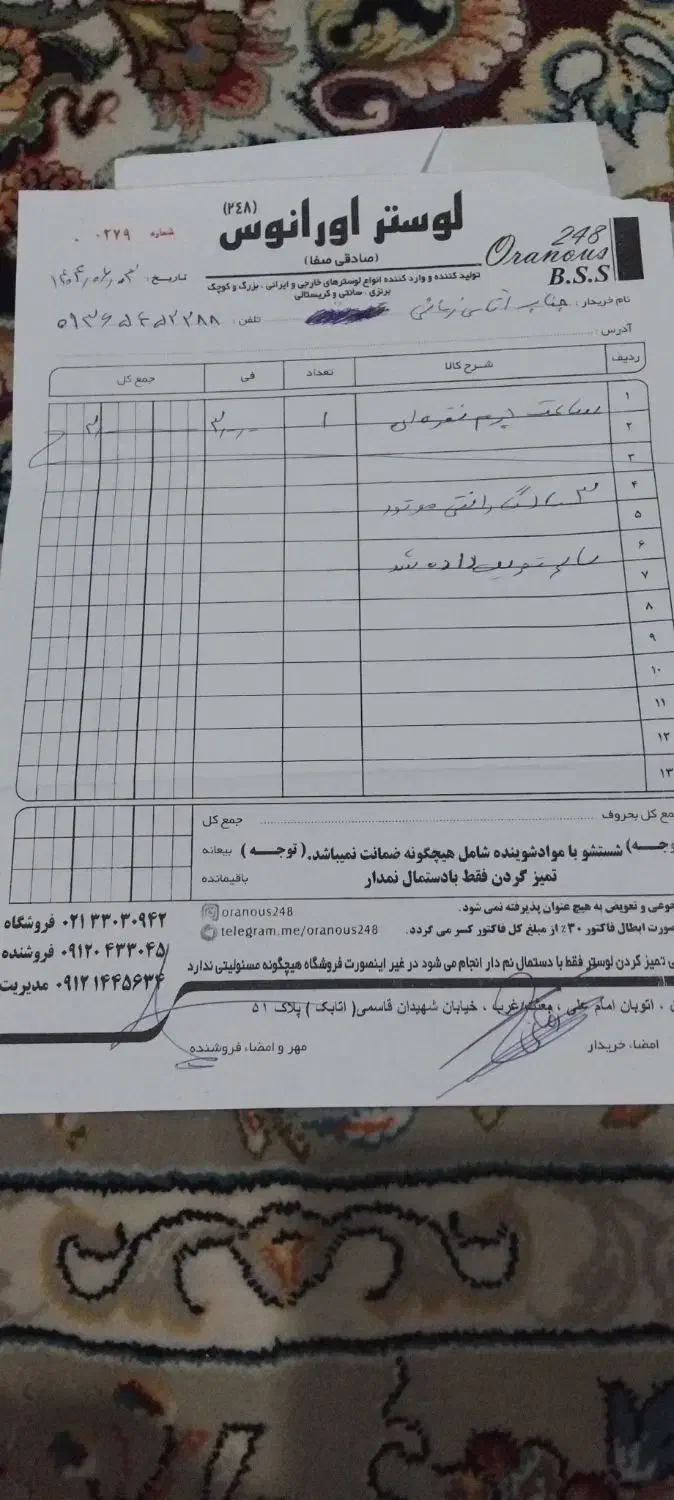 لوستر اورانوس (۲۴۸)
(صادقی صفا)
248
Oranous
B.S.S
شماره ۰۲۷۹
تولید کننده و وارد کننده انواع لوسترهای خارجی و ایرانی ، بزرگ و کوچک
برنزی ، سانتی و کریستالی
تاریخ:
نام خریدار: جناب آقای
تلفن:
آدرس:
ردیف شرح کالا تعداد فی جمع کل
۱ ساعت چرم نقره‌ای ۱
۲
۳
۴ ۳ سال گارانتی موتور
۵
۶ سالم تحویل داده شد
۷
۸
۹
۱۰
۱۱
۱۲
۱۳
جمع کل بحروف جمع کل
(توجه) شستشو با موادشوینده شامل هیچگونه ضمانت نمیباشد.(توجه) بیعانه
تمیز کردن فقط بادستمال نمدار باقیمانده
و تعویض به هیچ عنوان پذیرفته نمی شود. oranous248
صورت ابطال فاکتور ۳۰٪ از مبلغ کل فاکتور کسر می گردد. telegram.me/oranous248
۰۲۱ ۳۳۰۳۰۹۴۲ فروشگاه
۰۹۱۲۰ ۴۳۳۰۴۵ فروشنده
۰۹۱۲۱۴۴۵۶۳۴ مدیریت
تمیز کردن لوستر فقط با دستمال نم دار انجام می شود در غیر اینصورت فروشگاه هیچگونه مسئولیتی ندارد
، اتوبان امام علی ، ، خیابان شهیدان قاسمی( اتابک ) پلاک ۵۱
امضا، خریدار مهر و امضا، فروشنده